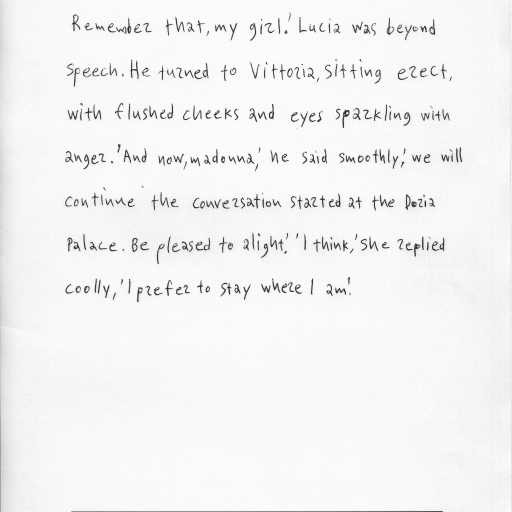 Remember that, my girl.' Lucia was beyond
speech. He turned to Vittoria, sitting erect,
with flushed cheeks and eyes sparkling with
anger. 'And now, madonna,' he said smoothly,' we will
continue the conversation started at the Doria
Palace. Be pleased to alight.' 'I think,' she replied
coolly, 'I prefer to stay where I am.'